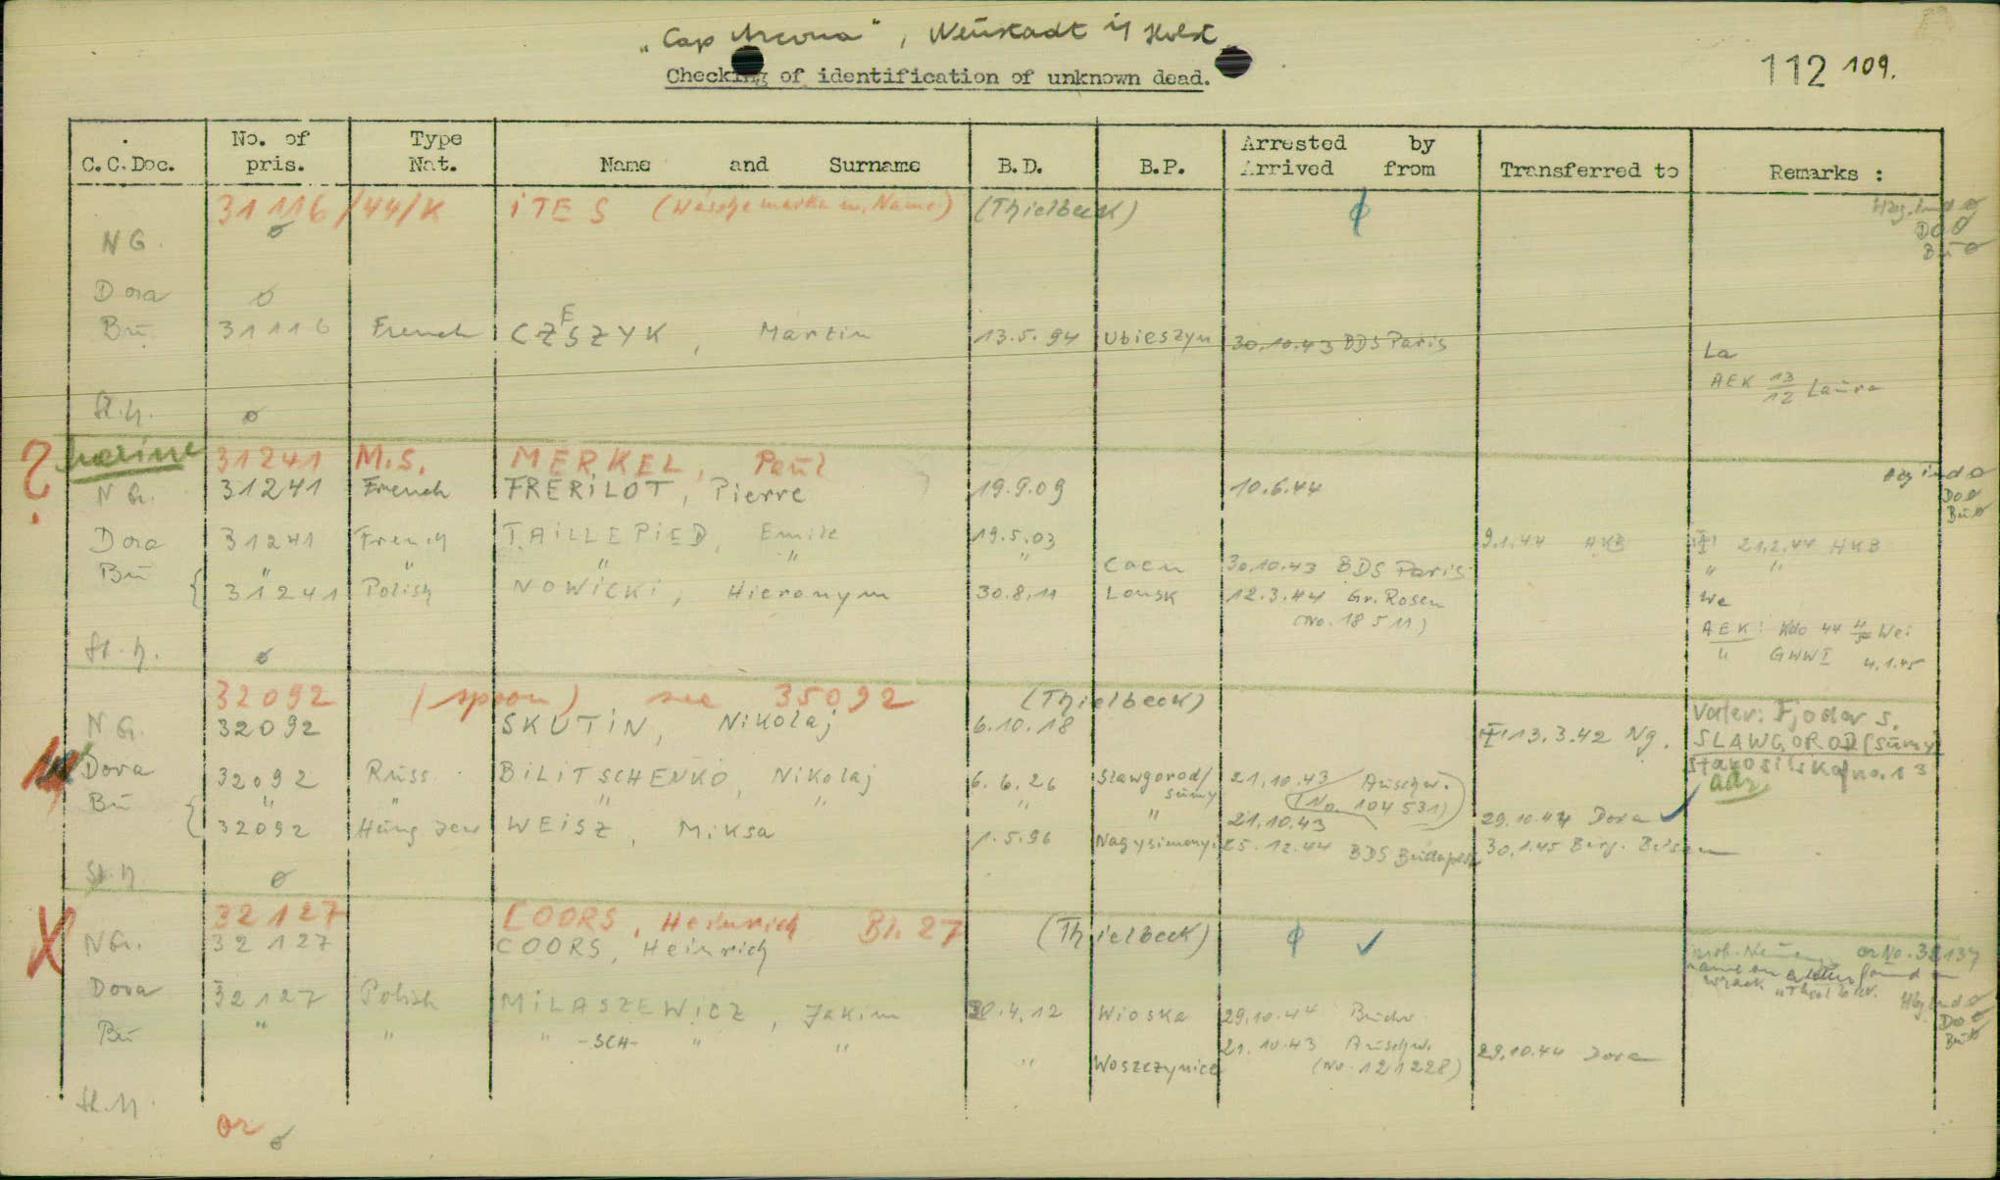 „Cap Arcona“, Neustadt i/ Holst
Checking of identification of unknown dead.
112 109.
C.C.Doc. No. of pris. Type Nat. Name and Surname B.D. B.P. Arrested by Arrived from Transferred to Remarks :
31116/44/K ITES (Wäschemarke m. Name) (Thielbeck) ϕ
NG. ø Do ø
Bu ø
Dora ø
Bu. 31116 French CZESZYK, Martin 13.5.94 Ubieszyn 30.10.43 BDS Paris
La
AEK 13/12 Laura
St.H. ø
? Marine 31241 M.S. MERKEL, Paul
N G. 31241 French FRERILOT, Pierre 19.9.09 10.6.44
Do ø
Bu ø
Dora 31241 French TAILLEPIED, Emile 19.5.03 9.1.44 HKB 21.2.44 HKB
Bu " " " " " Caen 30.10.43 BDS Paris " "
31241 Polish NOWICKI, Hieronym 30.8.11 Lonsk 12.3.44 Gr. Rosen We
(No. 18511)
AEK: Kdo 44 Wei
" GWWI 4.1.45
St.H. ø
32092 (spoon) see 35092 (Thielbeck)
N G. 32092 SKUTIN, Nikolaj 6.10.18 13.3.42 Ng. Vater: Fjodor S.
SLAWGOROD (Sumy)
Dora 32092 Russ. BILITSCHENKO, Nikolaj 6.6.26 Slawgorod/ Sumy 21.10.43 Auschw.
(No 104531)
Bu " " " " " " 21.10.43 29.10.44 Dora
32092 Hung Jew WEISZ, Miksa 1.5.96 Nagysimonyi 25.12.44 BDS Budapest 30.1.45 Berg. Belsen
St.H. ø
X 32127 COORS, Heinrich Bl. 27 (Thielbeck) ϕ ✓
NG. 32127 COORS, Heinrich or No. 32137
name on a letter found on
wrack „Thielbeck“.
Dora 32127 Polish MILASZEWICZ, Jakim 30.4.12 Wioska 29.10.44 Buchw. Do ø
Bu ø
Bu " " " -SCH- " " " Woszczynice 21.10.43 Auschw.
(No. 121228) 29.10.44 Dora
St.H.
or ø